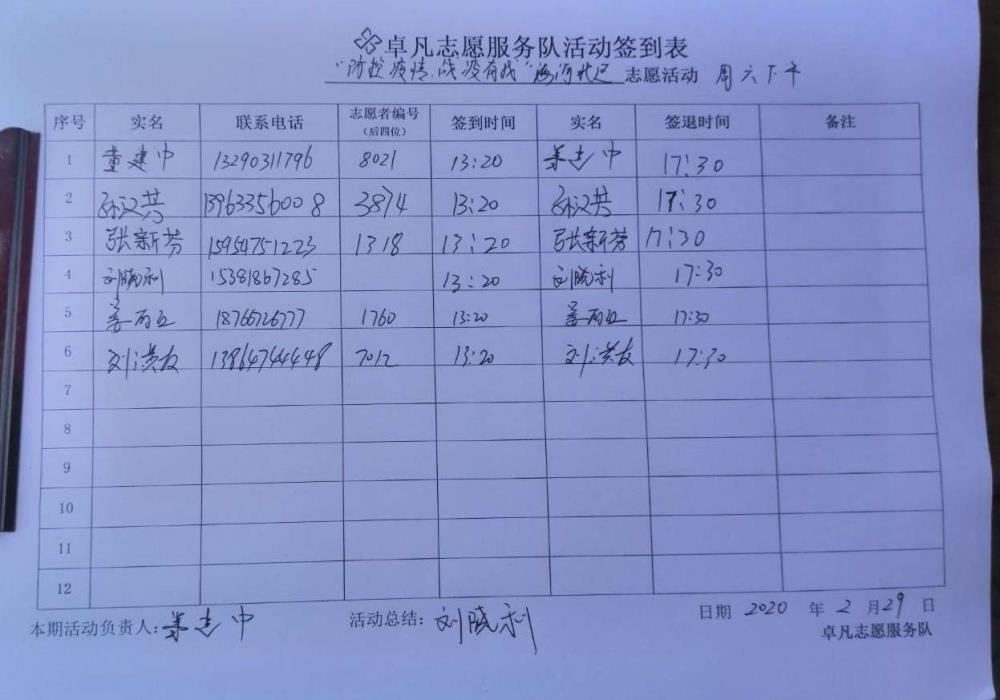 卓凡志愿服务队活动签到表
"防控疫情，战疫有我" 海河北区 志愿活动 周六下午
序号 实名 联系电话 志愿者编号（后四位） 签到时间 实名 签退时间 备注
1 董建中 13290311796 8021 13:20 董建中 17:30
2 孙汉英 13963356008 3874 13:20 孙汉英 17:30
3 张新芳 15954751223 1318 13:20 张新芳 17:30
4 刘晓利 15381867285 13:20 刘晓利 17:30
5 18766726777 1760 13:20 17:30
6 刘洪友 13864744448 7012 13:20 刘洪友 17:30
7
8
9
10
11
12
本期活动负责人: 活动总结: 刘晓利 日期 2020 年 2 月 29 日
卓凡志愿服务队